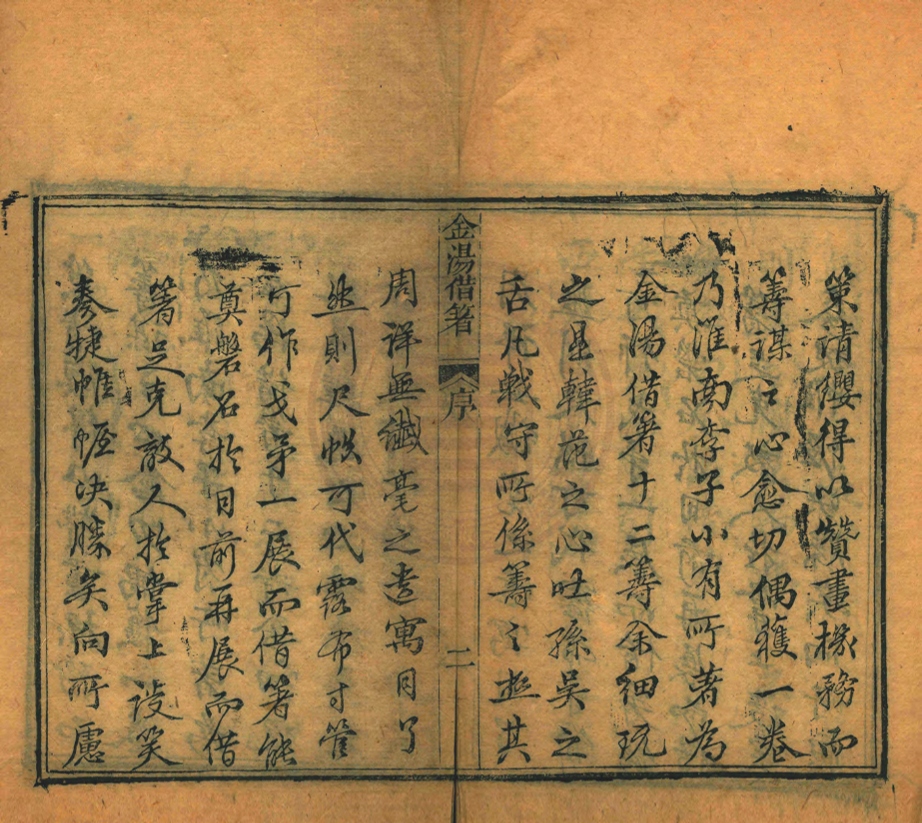 策請纓得以贊畫機務而
籌謀之心愈切偶獲一卷
乃淮南李子小有所著為
金湯借箸十二籌余細玩
之星韓范之心吐孫吳之
舌凡戰守所係籌之極其
金湯借箸 序 二
周詳無纖毫之遺寓目了
然則尺帙可代露布寸管
可作戈矛一展而借箸能
奠磐石於目前再展而借
箸足克敵人於掌上談笑
奏捷帷幄決勝矣向所慮